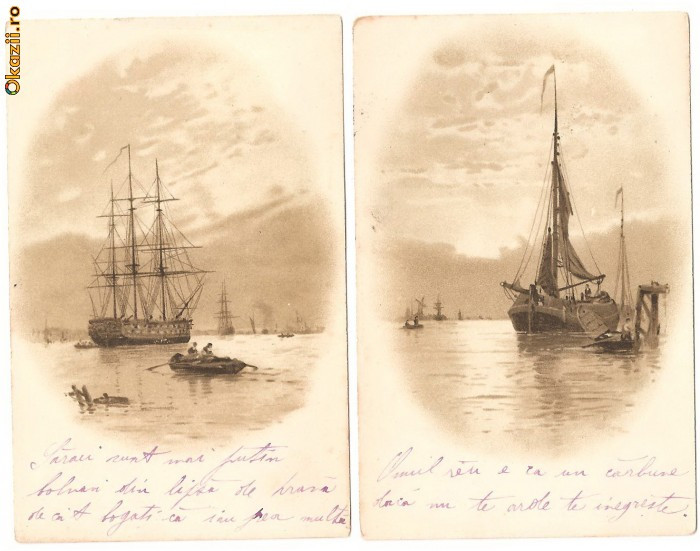 Okazii.ro
Săraci sunt mai puțin
bolnavi din lipsă de hrană
de cât bogați că iau prea multă
Omul rău e ca un cărbune
dacă nu te arde te înegrește.